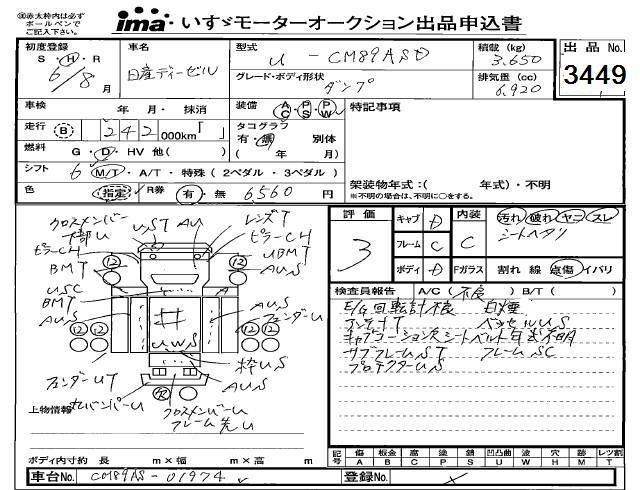 ※赤太枠内は必ず
ボールペンで
ご記入下さい。
ima いすゞモーターオークション出品申込書
初度登録
S・H・R
6/8月
車名
日産ディーゼル
型式
U-CM89ASD
グレード・ボディ形状
ダンプ
積載(kg)
3,650
排気量(cc)
6,920
出品No.
3449
車検 年 月・抹消
装備 A/C P/S P/W
特記事項
走行 B 242 000km「 」
タコグラフ
有・無 別体
( 年 月)
燃料 G・D・HV 他( )
シフト 6 M/T・A/T・特殊(2ペダル・3ペダル)
架装物年式:( 年式)・不明
※不明の場合は、不明に○をする。
色 指定 R券 有・無 6,560円
評価 3
キャブ D
フレーム C
ボディ D
内装 C
汚れ 破れ ヤニ スレ
シートヘタリ
Fガラス 割れ 線 点傷 イバリ
検査員報告 A/C(不良) B/T( )
E/G回転計不良 白煙
アンテナT ベッセルUS
キャブコーションスシートベルト
サブフレームST フレームSC
プロテクターUS
クロスメンバー
下部U
UST AU
レンズT
ピラーCH
ピラーCH
BMT
UBMT
AUS
USC
BMT
AUS
AUS
フェンダーU
UWS
枠US
AUS
フェンダーUT
クロスメンバーU
フレーム先U
12 12 12 12 12 12
欠
上物情報
ボディ内寸約 長 m×幅 m×高 m
記号 傷A 板金B 腐C 塗P 錆S 凹凸曲U 波W 穴H 跡M レツ割T
車台No. CM89AS-01974
登録No.